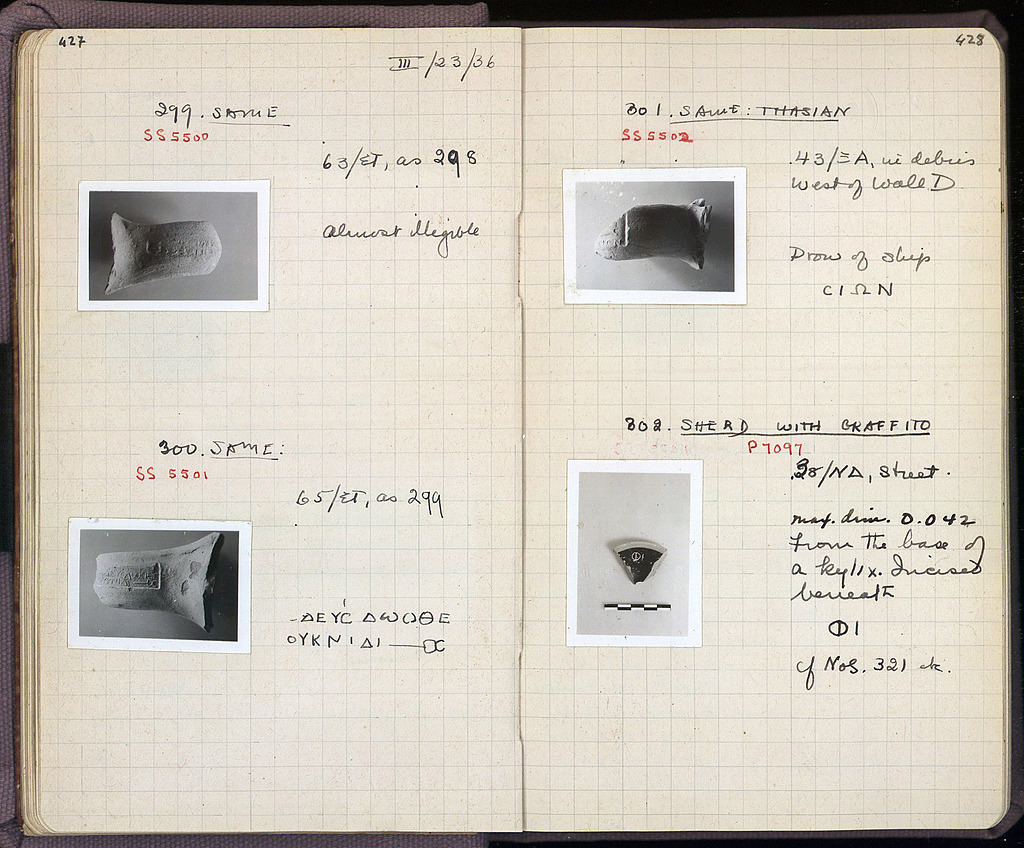 427
III/23/36
299. SAME
SS 5500
63/ΣΤ, as 298
almost illegible
300. SAME:
SS 5501
65/ΣΤ, as 299
ΟΥΚΝΙΔΙ
428
301. SAME: THASIAN
SS 5502
43/ΞΑ, in debris
West of Wall D
Prow of ship
CΙΩΝ
302. SHERD WITH GRAFFITO
P 7097
38/ΝΔ, Street.
max. dim. 0.042
From the base of
a kylix. Incised
beneath
ΦΙ
cf Nos. 321 etc.